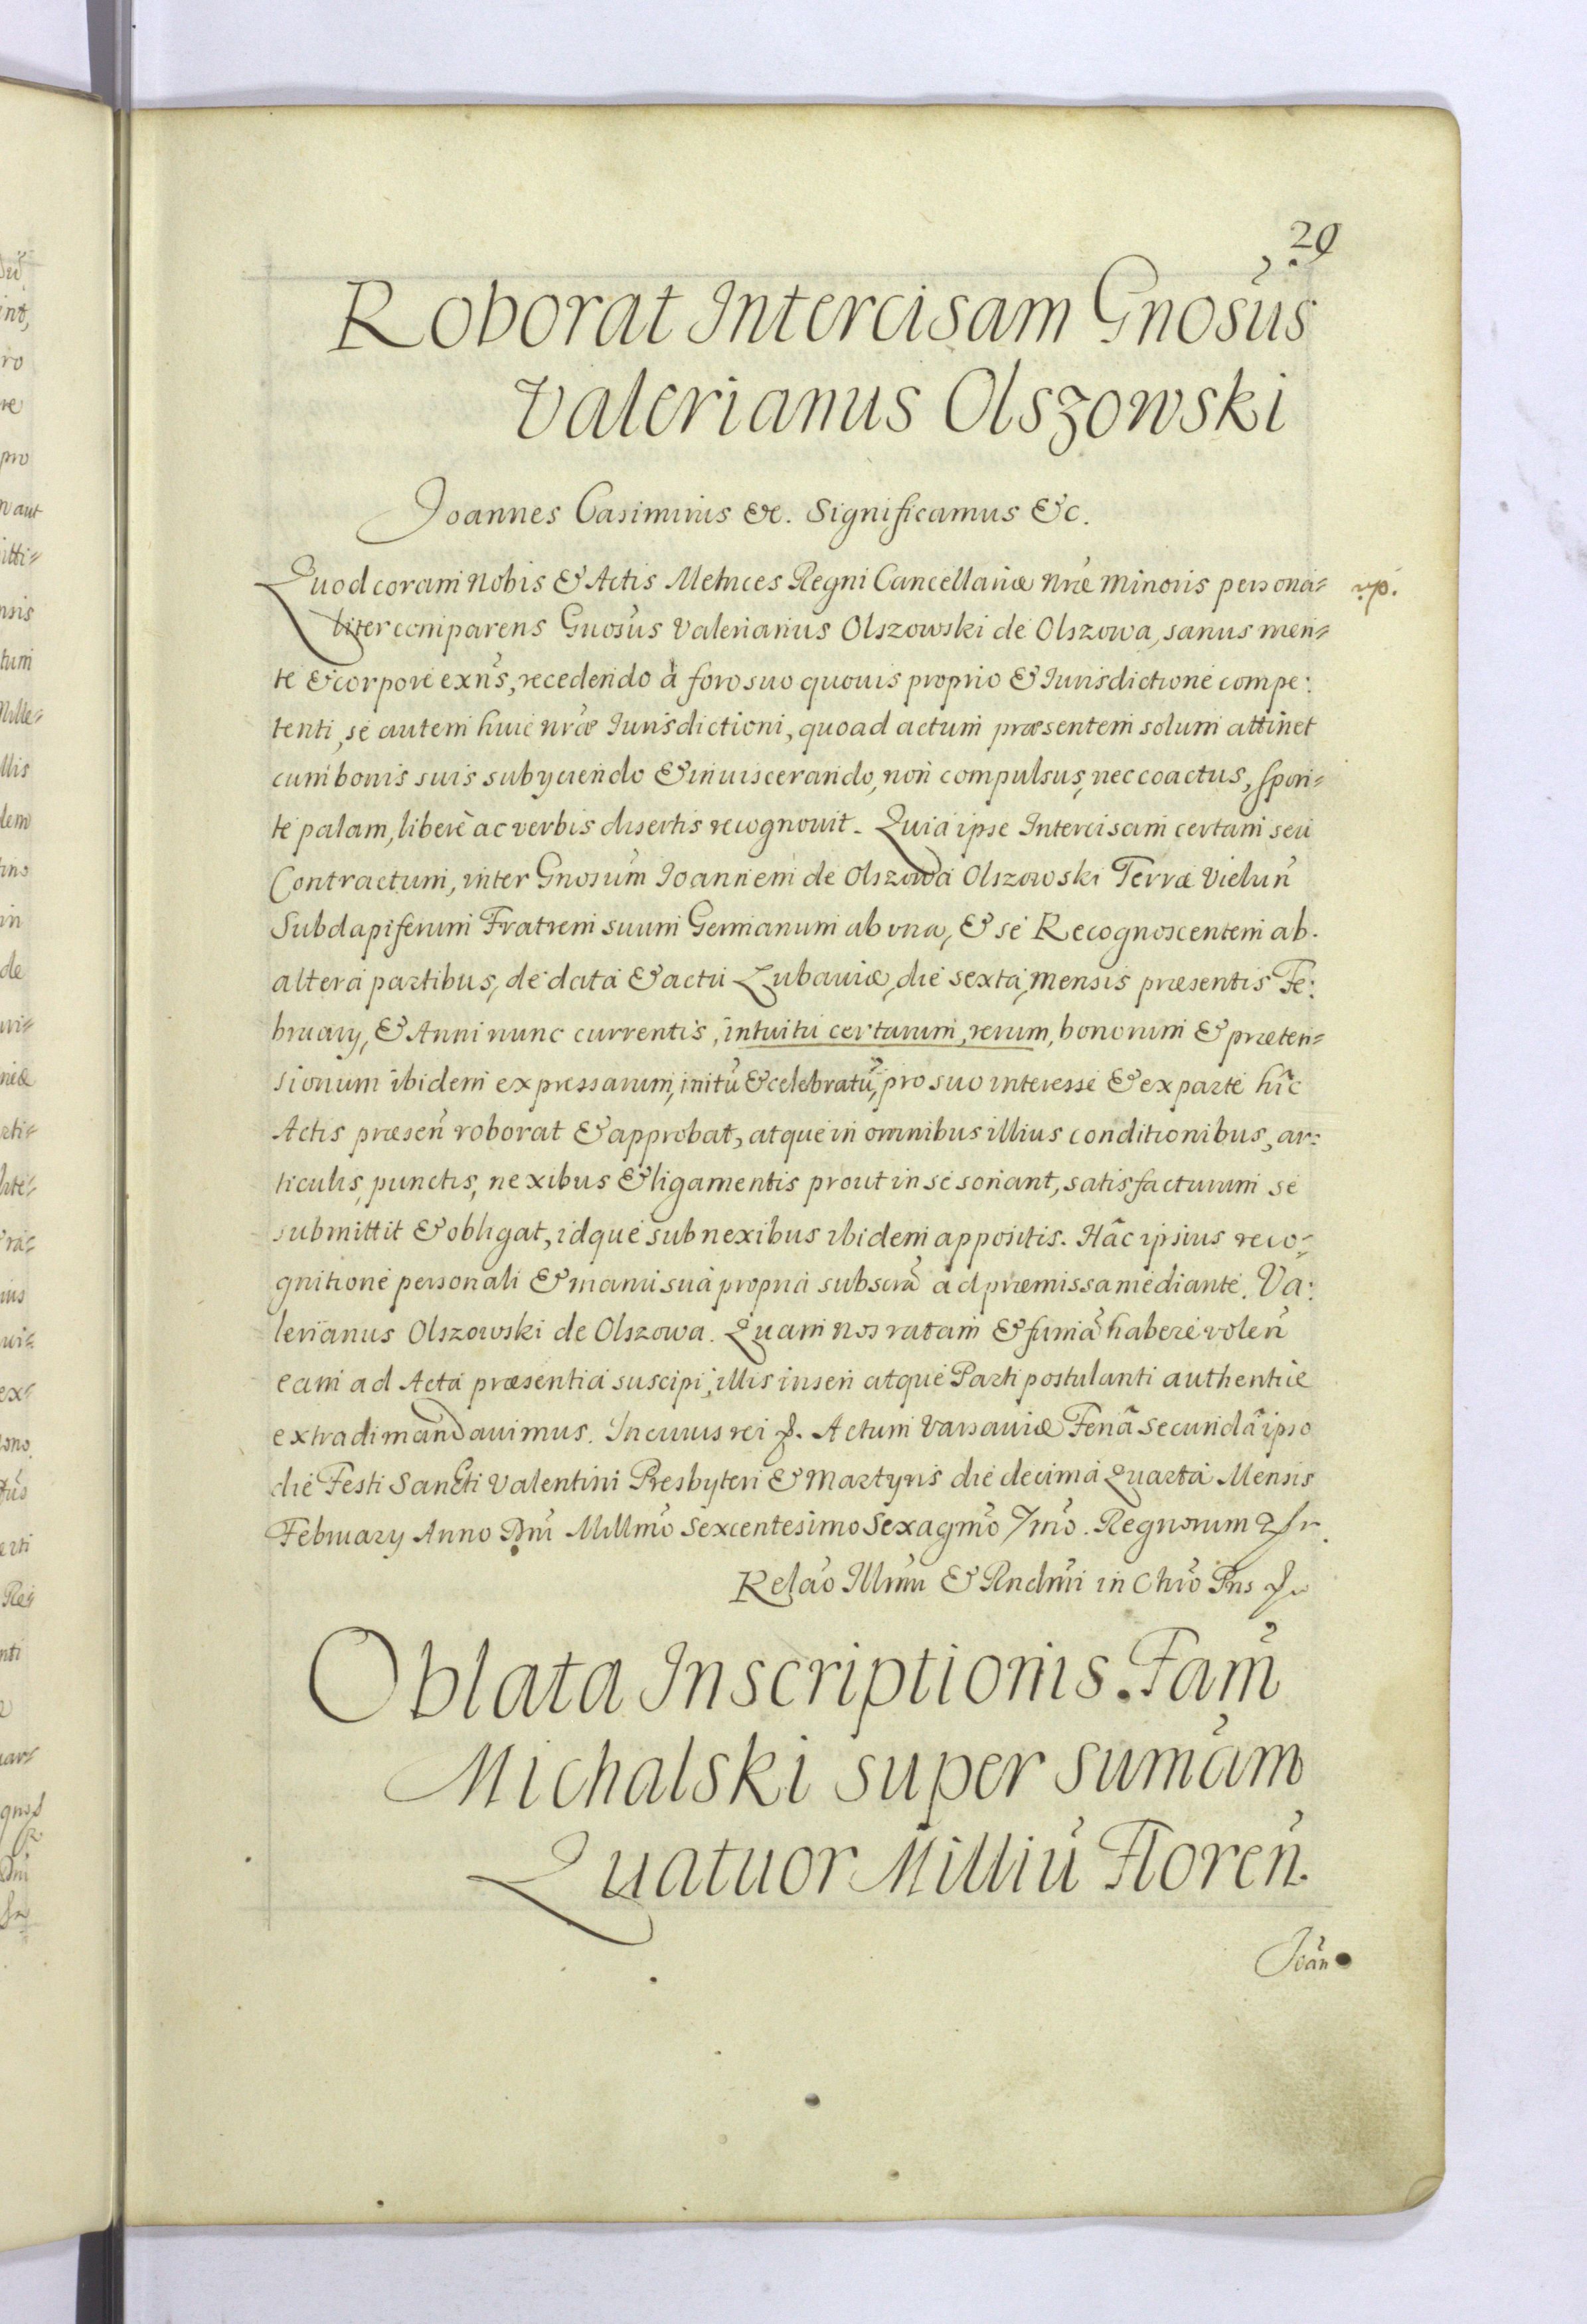 29
Roborat Intercisam Gnosus
Valerianus Olszowski
Joannes Casimirus &c. Significamus &c.
Quod coram Nobis & Actis Metrices Regni Cancellariæ Nræ Minoris persona=
liter comparens Gnosus Valerianus Olszowski de Olszowa, sanus men=
te & corpore exns, recedendo à foro suo quouis proprio & Iurisdictione compe:
tenti, se autem huic nræ Iurisdictioni, quoad actum præsentem solum attinet
cum bonis suis subyciendo & inuiscerando, non compulsus, nec coactus, spon=
te palam, liberè ac verbis disertis recognouit. Quia ipse Intercisam certam seu
Contractum, inter Gnosum Ioannem de Olszowa Olszowski Terræ Vielun
Subdapiferum Fratrem suum Germanum ab vna, & se Recognoscentem ab.
altera partibus, de data & actu Lubaviæ, die sexta, mensis præsentis Fe:
bruary, & Anni nunc currentis, intuitu certarum, rerum, bonorum & præten=
sionum ibidem expressarum, initũ & celebratũ, pro suo interesse & ex parte hîc
Actis præsen roborat & approbat, atque in omnibus illius conditionibus, ar=
ticulis, punctis, nexibus & ligamentis prout in se sonant, satisfacturum se
submittit & obligat, idque sub nexibus ibidem appositis. Hâc ipsius reco=
gnitione personali & manu sua propria subscrã ad præmissa mediante. Va:
lerianus Olszowski de Olszowa. Quam nos ratam & firmã habere volen
eam ad Acta præsentia suscipi, illis inseri atque Parti postulanti authentice
extradi mandauimus. In cuius rei &. Actum Varsauiæ Feriâ secundâ ipso
die Festi Sancti Valentini Presbyteri & Martyris die decima Quarta Mensis
February Anno Dni Millmo Sexcentesimo Sexagmo 7mo. Regnorum
Relao Illmi & Rndmi in Chro Pris
Oblata Inscriptionis. Fam
Michalski super sumam
Quatuor Milliũ Floren.
Joan